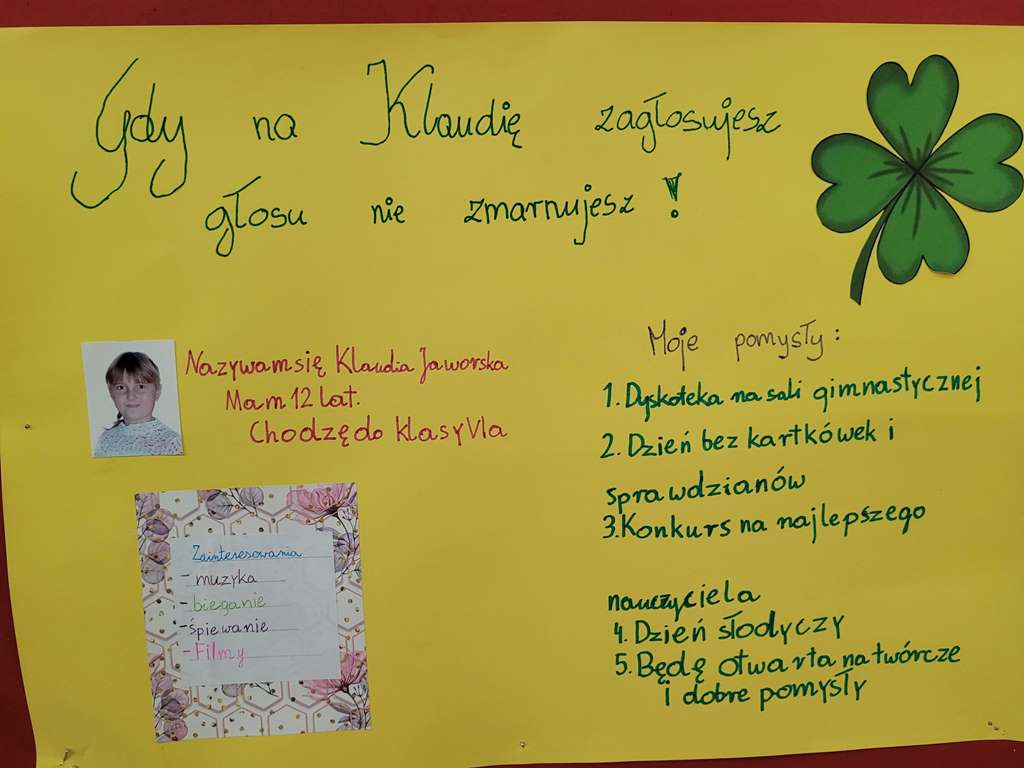 Gdy na Klaudię zagłosujesz
głosu nie zmarnujesz!
Nazywam się Klaudia Jaworska
Mam 12 lat.
Chodzę do klasy VIa
Zainteresowania
- muzyka
- bieganie
- śpiewanie
- Filmy
Moje pomysły:
1. Dyskoteka na sali gimnastycznej
2. Dzień bez kartkówek i
sprawdzianów
3. Konkurs na najlepszego
nauczyciela
4. Dzień słodyczy
5. Będę otwarta na twórcze
i dobre pomysły